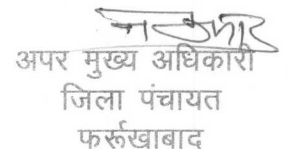 अपर मुख्य अधिकारी
जिला पंचायत
फर्रूखाबाद